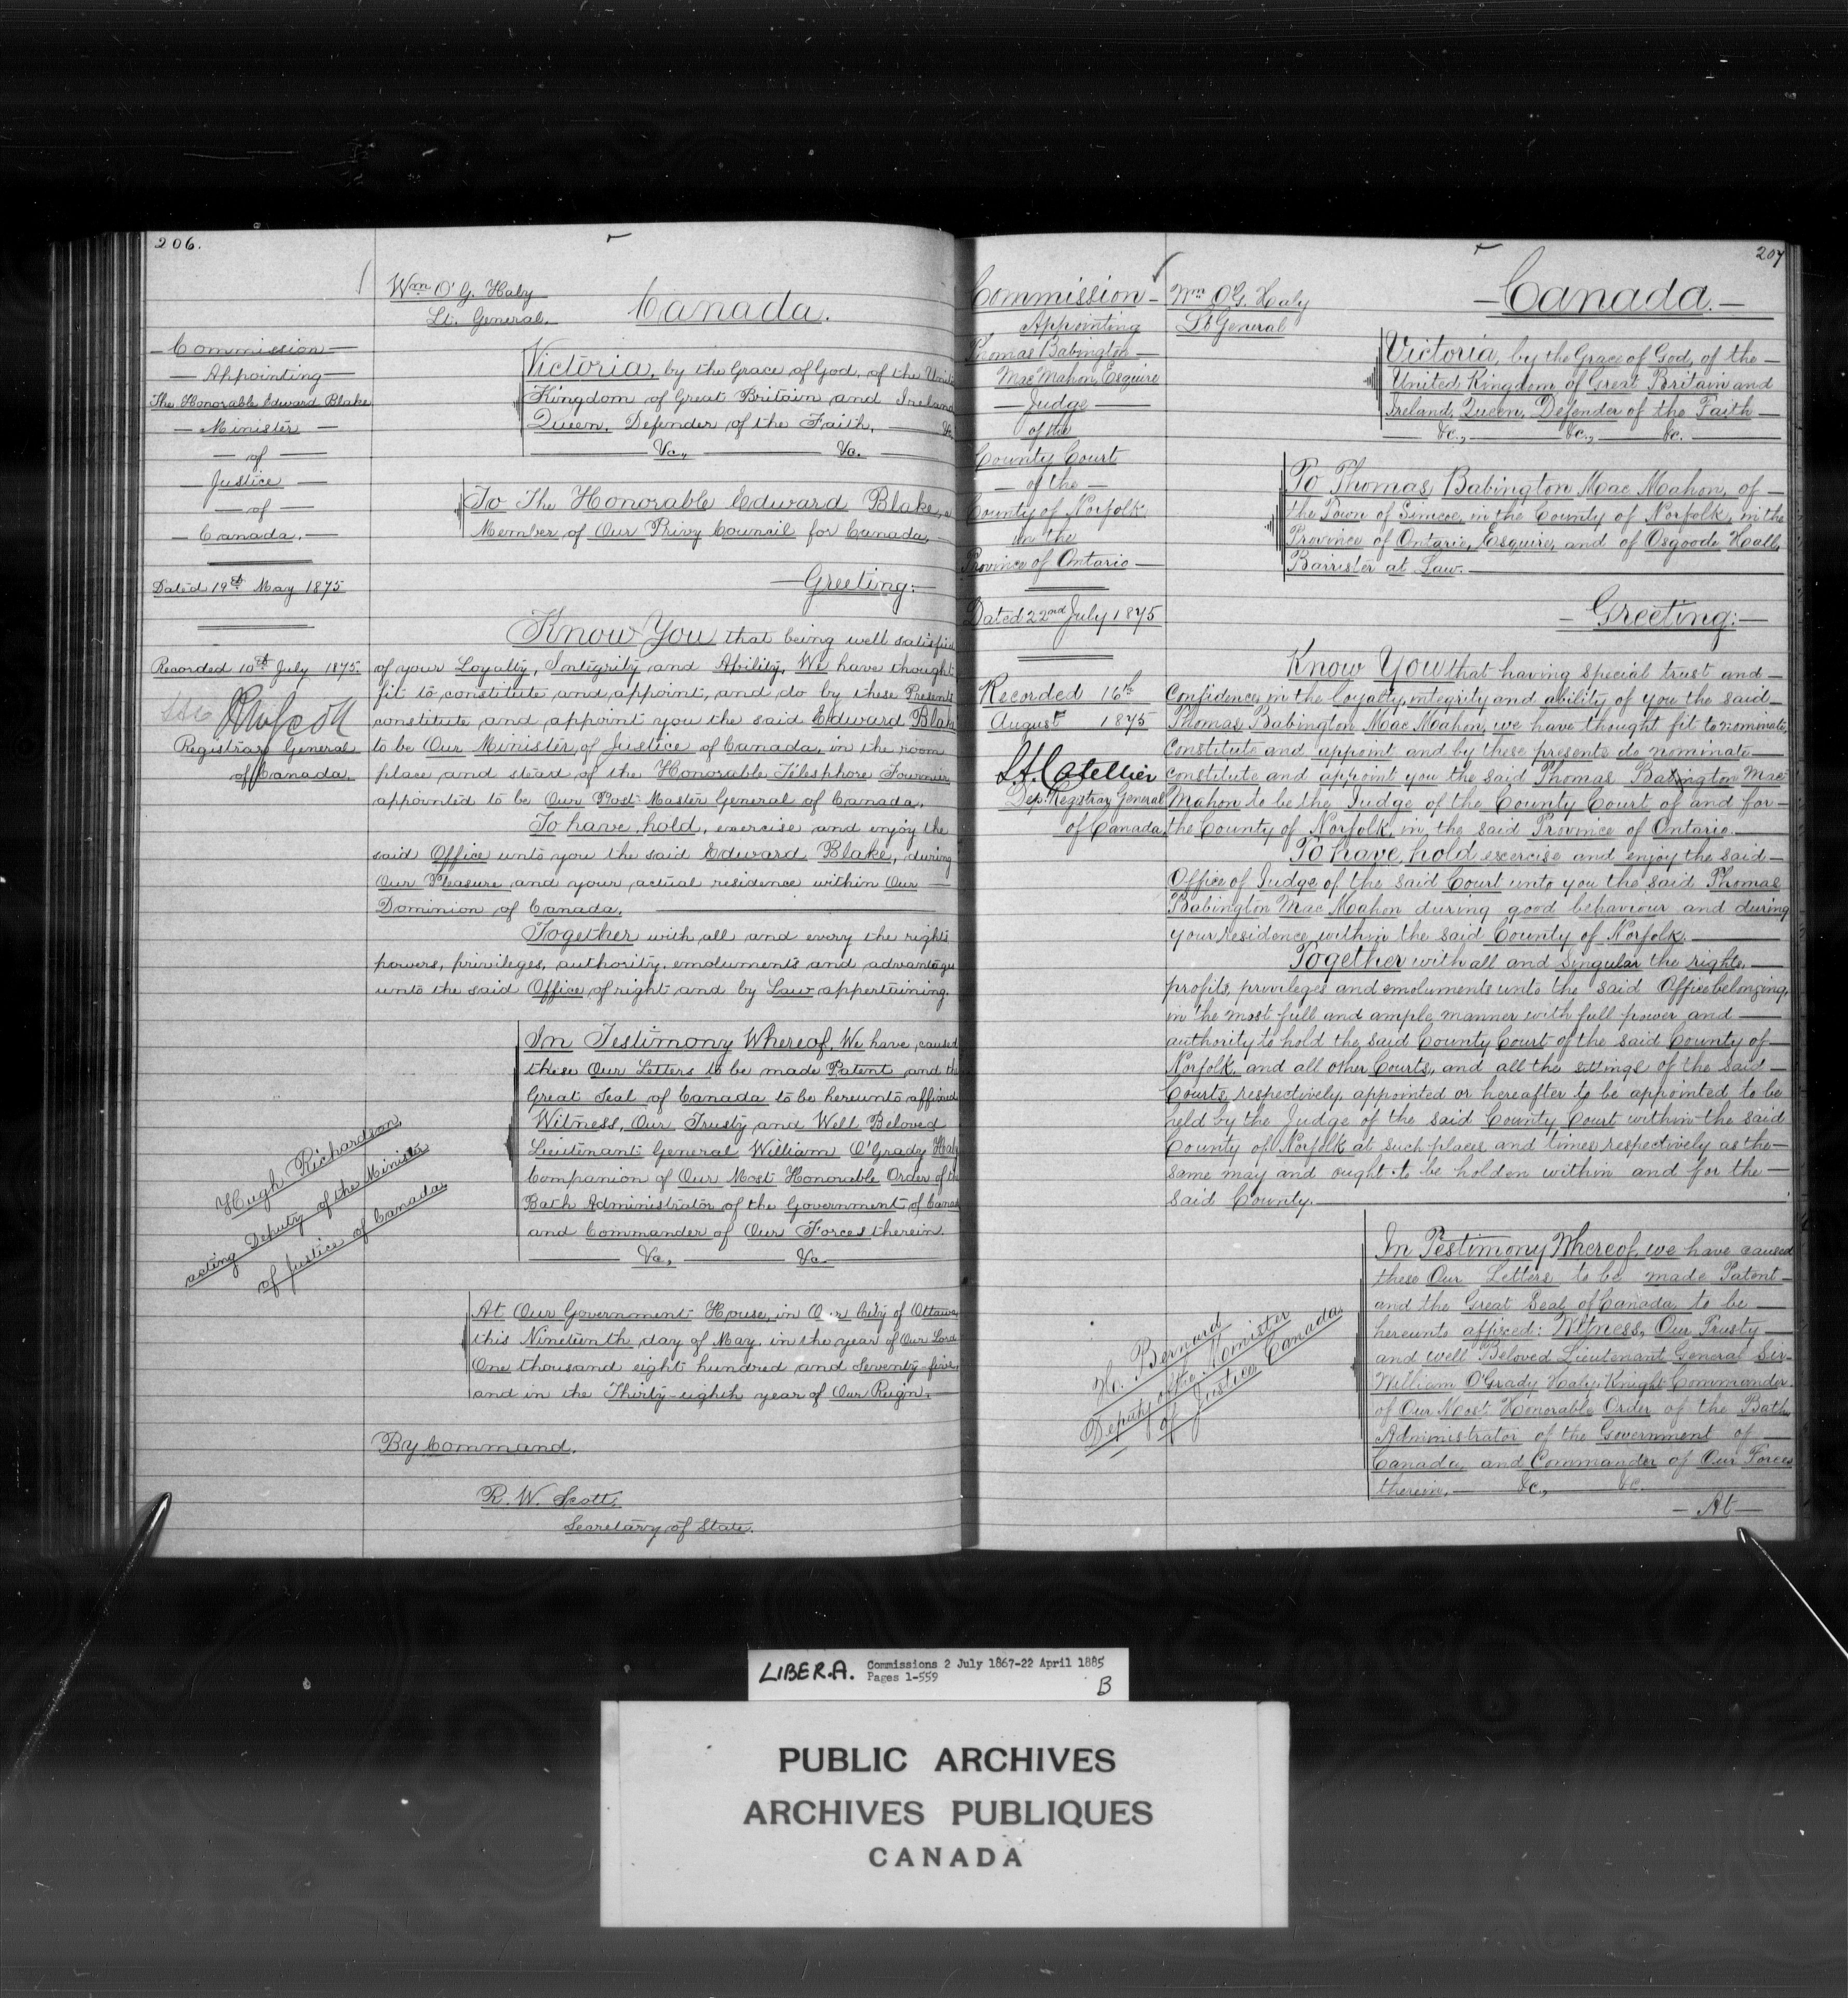 206.
Wm O'G. Haly
Lt. General.
Canada.
Commission
Appointing
The Honorable Edward Blake
Minister
of
Justice
of
Canada.
Dated 19th May 1875
Recorded 10th July 1875.
RWScott
Registrar General
of Canada.
Victoria, by the Grace of God, of the
Kingdom of Great Britain and Ireland
Queen, Defender of the Faith, &c
&c., &c.
To The Honorable Edward Blake, a
Member of Our Privy Council for Canada,
Greeting:
Know You that being well satisfied
of your Loyalty, Integrity and Ability, We have thought
fit to constitute and appoint, and do by these Presents
constitute and appoint you the said Edward Blake
to be Our Minister of Justice of Canada, in the room
place and stead of the Honorable Télesphore Fournier
appointed to be Our Post Master General of Canada.
To have, hold, exercise and enjoy the
said Office unto you the said Edward Blake, during
Our Pleasure and your actual residence within Our
Dominion of Canada.
Together with all and every the rights
powers, privileges, authority, emoluments and advantages
unto the said Office of right and by Law appertaining.
In Testimony Whereof, We have caused
these Our Letters to be made Patent and the
Great Seal of Canada to be hereunto affixed
Witness, Our Trusty and Well Beloved
Lieutenant General William O'Grady Haly
Companion of Our Most Honorable Order of the
Bath Administrator of the Government of Canada
and Commander of Our Forces therein.
&c., &c.
Hugh Richardson,
acting Deputy of the Minister
of Justice of Canada.
At Our Government House, in Our City of Ottawa,
this Nineteenth day of May, in the year of Our Lord
One thousand eight hundred and Seventy-five,
and in the Thirty-eighth year of Our Reign.
By Command.
R. W. Scott,
Secretary of State.
207
Commission
Appointing
Thomas Babington
Mac Mahon, Esquire
Judge
of the
County Court
of the
County of Norfolk
in the
Province of Ontario
Dated 22nd July 1875
Recorded 16th
August 1875
L.A. Catellier
Dep. Registrar General
of Canada.
Wm O'G. Haly
Lt General
Canada.
Victoria, by the Grace of God, of the
United Kingdom of Great Britain and
Ireland, Queen, Defender of the Faith
&c., &c., &c.
To Thomas Babington Mac Mahon, of
the Town of Simcoe, in the County of Norfolk, in the
Province of Ontario, Esquire, and of Osgoode Hall,
Barrister at Law.
Greeting:
Know You that having special trust and
Confidence in the loyalty, integrity and ability of you the said
Thomas Babington Mac Mahon, we have thought fit to nominate,
Constitute and appoint and by these presents do nominate
constitute and appoint you the said Thomas Babington Mac
Mahon to be the Judge of the County Court of and for
the County of Norfolk, in the said Province of Ontario.
To have, hold excercise and enjoy the said
Office of Judge of the said Court unto you the said Thomas
Babington Mac Mahon during good behaviour and during
your residence within the said County of Norfolk.
Together with all and singular the rights,
profits, privileges and emoluments unto the said Office belonging,
in the most full and ample manner with full power and
authority to hold the said County Court of the said County of
Norfolk, and all other Courts, and all the sittings of the said
Courts, respectively appointed or hereafter to be appointed to be
held by the Judge of the said County Court within the said
County of Norfolk at such places and times respectively as the
same may and ought to be holden within and for the
said County.
In Testimony Whereof, we have caused
these Our Letters to be made Patent
and the Great Seal of Canada, to be
hereunto affixed: Witness, Our Trusty
and well Beloved Lieutenant General Sir
William O'Grady Haly, Knight Commander
of Our Most Honorable Order of the Bath,
Administrator of the Government of
Canada, and Commander of Our Forces
therein, &c., &c.
H. Bernard
Deputy of the Minister
of Justice Canada.
At
LIBER.A. Commissions 2 July 1867-22 April 1885
Pages 1-559
B
PUBLIC ARCHIVES
ARCHIVES PUBLIQUES
CANADA